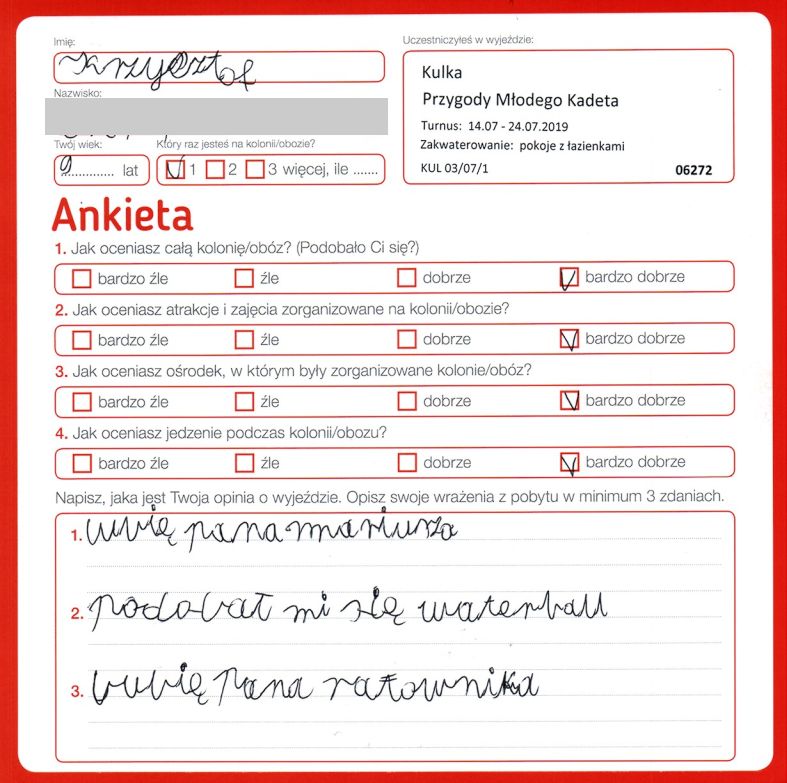 Imię:
Krzysztof
Nazwisko:
Twój wiek:
9 lat
Który raz jesteś na kolonii/obozie?
1 2 3 więcej, ile .......
Uczestniczyłeś w wyjeździe:
Kulka
Przygody Młodego Kadeta
Turnus: 14.07 - 24.07.2019
Zakwaterowanie: pokoje z łazienkami
KUL 03/07/1 06272
Ankieta
1. Jak oceniasz całą kolonię/obóz? (Podobało Ci się?)
bardzo źle źle dobrze bardzo dobrze
2. Jak oceniasz atrakcje i zajęcia zorganizowane na kolonii/obozie?
bardzo źle źle dobrze bardzo dobrze
3. Jak oceniasz ośrodek, w którym były zorganizowane kolonie/obóz?
bardzo źle źle dobrze bardzo dobrze
4. Jak oceniasz jedzenie podczas kolonii/obozu?
bardzo źle źle dobrze bardzo dobrze
Napisz, jaka jest Twoja opinia o wyjeździe. Opisz swoje wrażenia z pobytu w minimum 3 zdaniach.
1. lubię pana mariusza
2. podobał mi się waterball
3. lubię pana ratownika